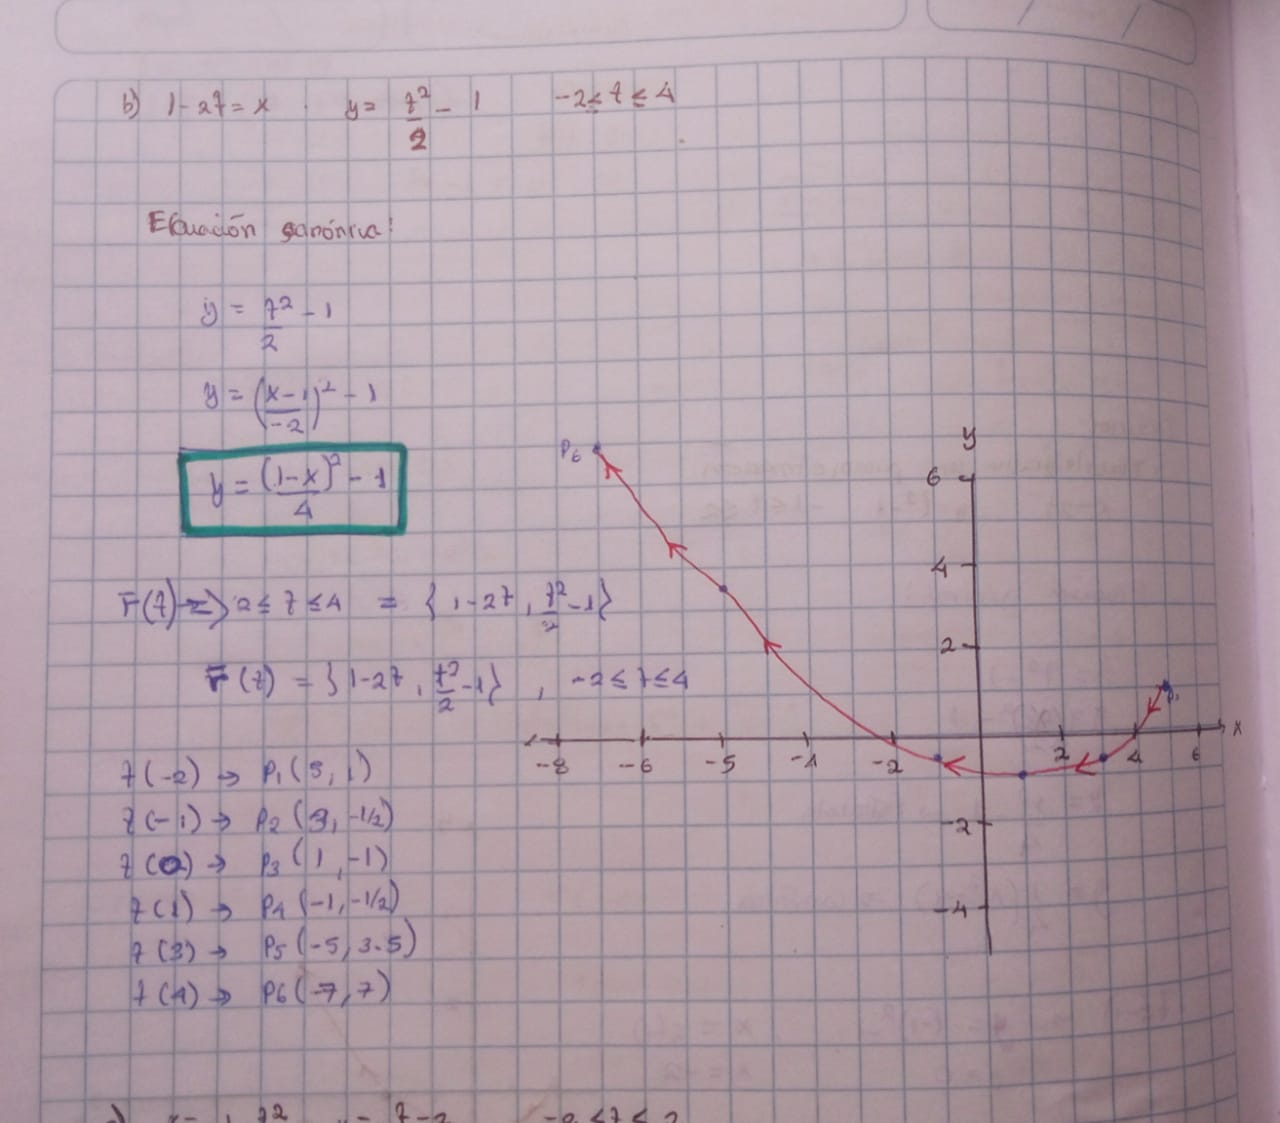 b) 1-2t = x y = t²/2 - 1 -2 ≤ t ≤ 4
Ecuación canónica:
y = t²/2 - 1
y = (x-1/-2)² - 1
y = (1-x)²/4 - 1
F(t) -2 ≤ t ≤ 4 = {1-2t, t²/2 -1}
F(t) = {1-2t, t²/2 -1}, -2 ≤ t ≤ 4
t(-2) → P1(5, 1)
t(-1) → P2(3, -1/2)
t(0) → P3(1, -1)
t(1) → P4(-1, -1/2)
t(3) → P5(-5, 3.5)
t(4) → P6(-7, 7)
P6
y
6
4
2
P1
x
-8 -6 -5 -4 -2 2 4 6
-2
-4